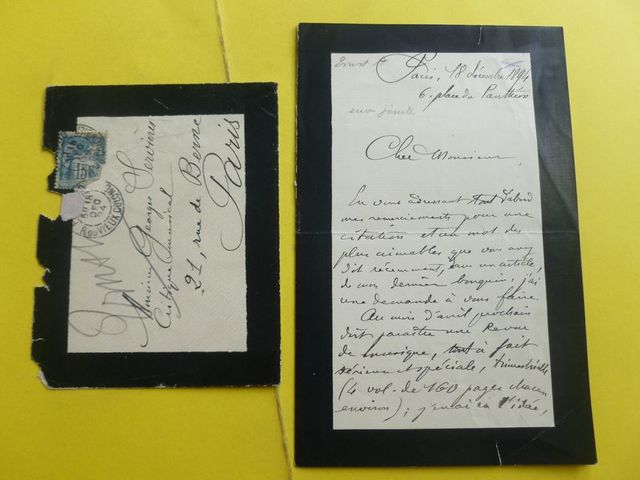 Monsieur Georges Servières
Critique musical
21, rue de Berne
Paris
15
DEC
94
Paris, 18 décembre 1894
6, place du Panthéon
env jointe
Cher Monsieur,
En vous adressant tout d'abord
mes remerciements pour une
citation et un mot des
plus aimables que vous avez
dit récemment, dans un article,
de mon dernier bouquin, j'ai
une demande à vous faire.
Au mois d'avril prochain
doit paraître une Revue
de musique, tout à fait
sérieuse et spéciale, trimestrielle
(4 vol. de 160 pages chacun
environ); j'en ai eu l'idée,